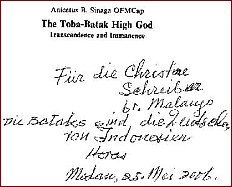 Anicetus B. Sinaga OFMCap
The Toba-Batak High God
Transcendence and Immanence
Für die Christine
Schreiber
br. Malango
Die Bataks sind die Deutschen
von Indonesien
Horas
Medan, 25. Mei 2006.